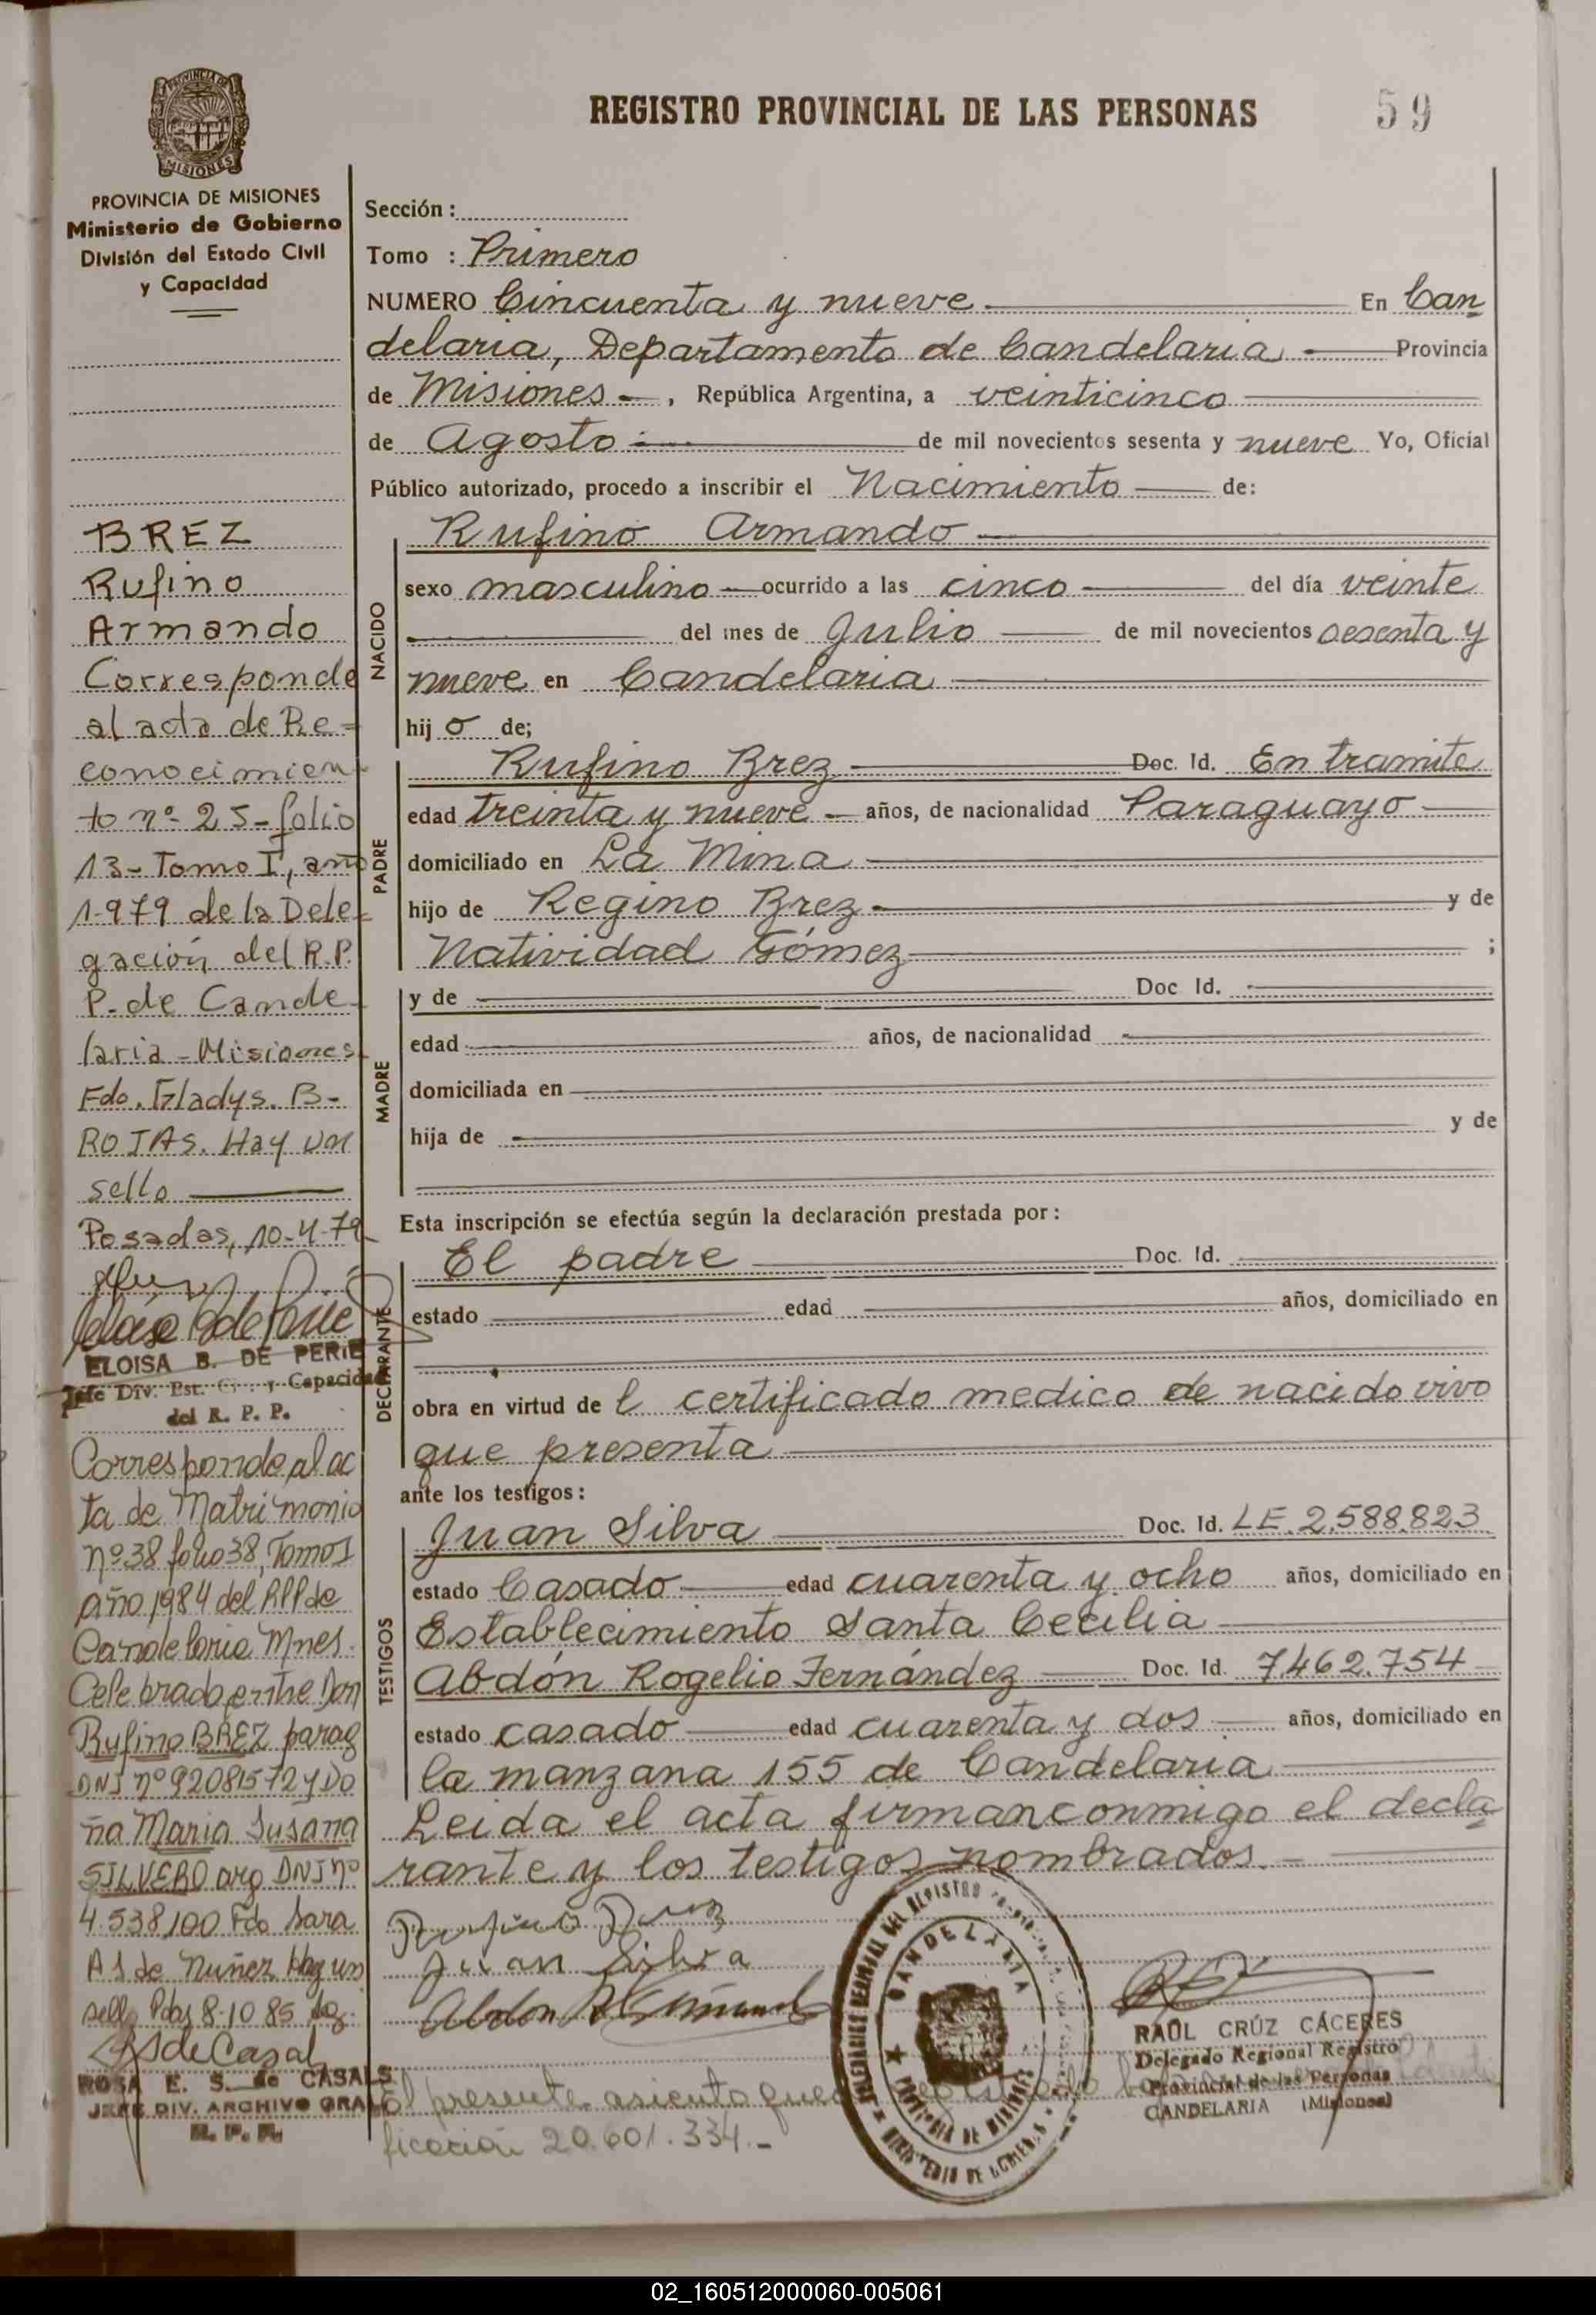 REGISTRO PROVINCIAL DE LAS PERSONAS
59
PROVINCIA DE
MISIONES
PROVINCIA DE MISIONES
Ministerio de Gobierno
División del Estado Civil
y Capacidad
BREZ
Rufino
Armando
Corresponde
al acta de Re=
conocimien-
to nº 25-folio
13-Tomo I, año
1.979 de la Dele=
gación del R.P.
P. de Cande-
laria-Misiones-
Fdo. Gladys. B-
ROJAS. Hay un
sello
Posadas, 10-4-79
ELOISA B. DE PERIE
Jefe Div. Est. C. y Capacidad
del R. P. P.
Corresponde al ac
ta de Matrimonio
nº 38 folio 38, Tomo I
año 1984 del RPP de
Candelaria Mnes.
Celebrado entre Don
Rufino BREZ parag
DNI nº 92081572 y Do
ña Maria Susana
SILVERO arg DNI nº
4.538100 Fdo Sara
A S de Nuñez Hay un
sello Pdas 8-10 85
ROSA E. S. de CASALS
JEFE DIV. ARCHIVO GRAL
R. P. P.
Sección :
Tomo : Primero
NUMERO Cincuenta y nueve En Can
delaria, Departamento de Candelaria Provincia
de Misiones , República Argentina, a veinticinco
de Agosto de mil novecientos sesenta y nueve Yo, Oficial
Público autorizado, procedo a inscribir el Nacimiento de:
NACIDO
Rufino Armando
sexo masculino ocurrido a las cinco del día veinte
del mes de Julio de mil novecientos sesenta y
nueve en Candelaria
hij o de;
PADRE
Rufino Brez Doc. Id. En tramite
edad treinta y nueve años, de nacionalidad Paraguayo
domiciliado en La Mina
hijo de Regino Brez y de
Natividad Gómez ;
MADRE
y de Doc Id.
edad años, de nacionalidad
domiciliada en
hija de y de
Esta inscripción se efectúa según la declaración prestada por:
DECLARANTE
El padre Doc. Id.
estado edad años, domiciliado en
obra en virtud de l certificado medico de nacido vivo
que presenta
ante los testigos:
TESTIGOS
Juan Silva Doc. Id. LE 2.588.823
estado Casado edad cuarenta y ocho años, domiciliado en
Establecimiento Santa Cecilia
Abdón Rogelio Fernández Doc. Id. 7.462.754
estado casado edad cuarenta y dos años, domiciliado en
la manzana 155 de Candelaria
Leida el acta firman conmigo el decla
rante y los testigos nombrados.
Rufino Brez
Juan Silva
Abdon R
CANDELARIA
PROVINCIA DE MISIONES
MINISTERIO DE GOBIERNO
RAÚL CRÚZ CÁCERES
Delegado Regional Registro
Provincial de las Personas
CANDELARIA (Misiones)
El presente asiento
ficación 20.601.334.-
02_160512000060-005061